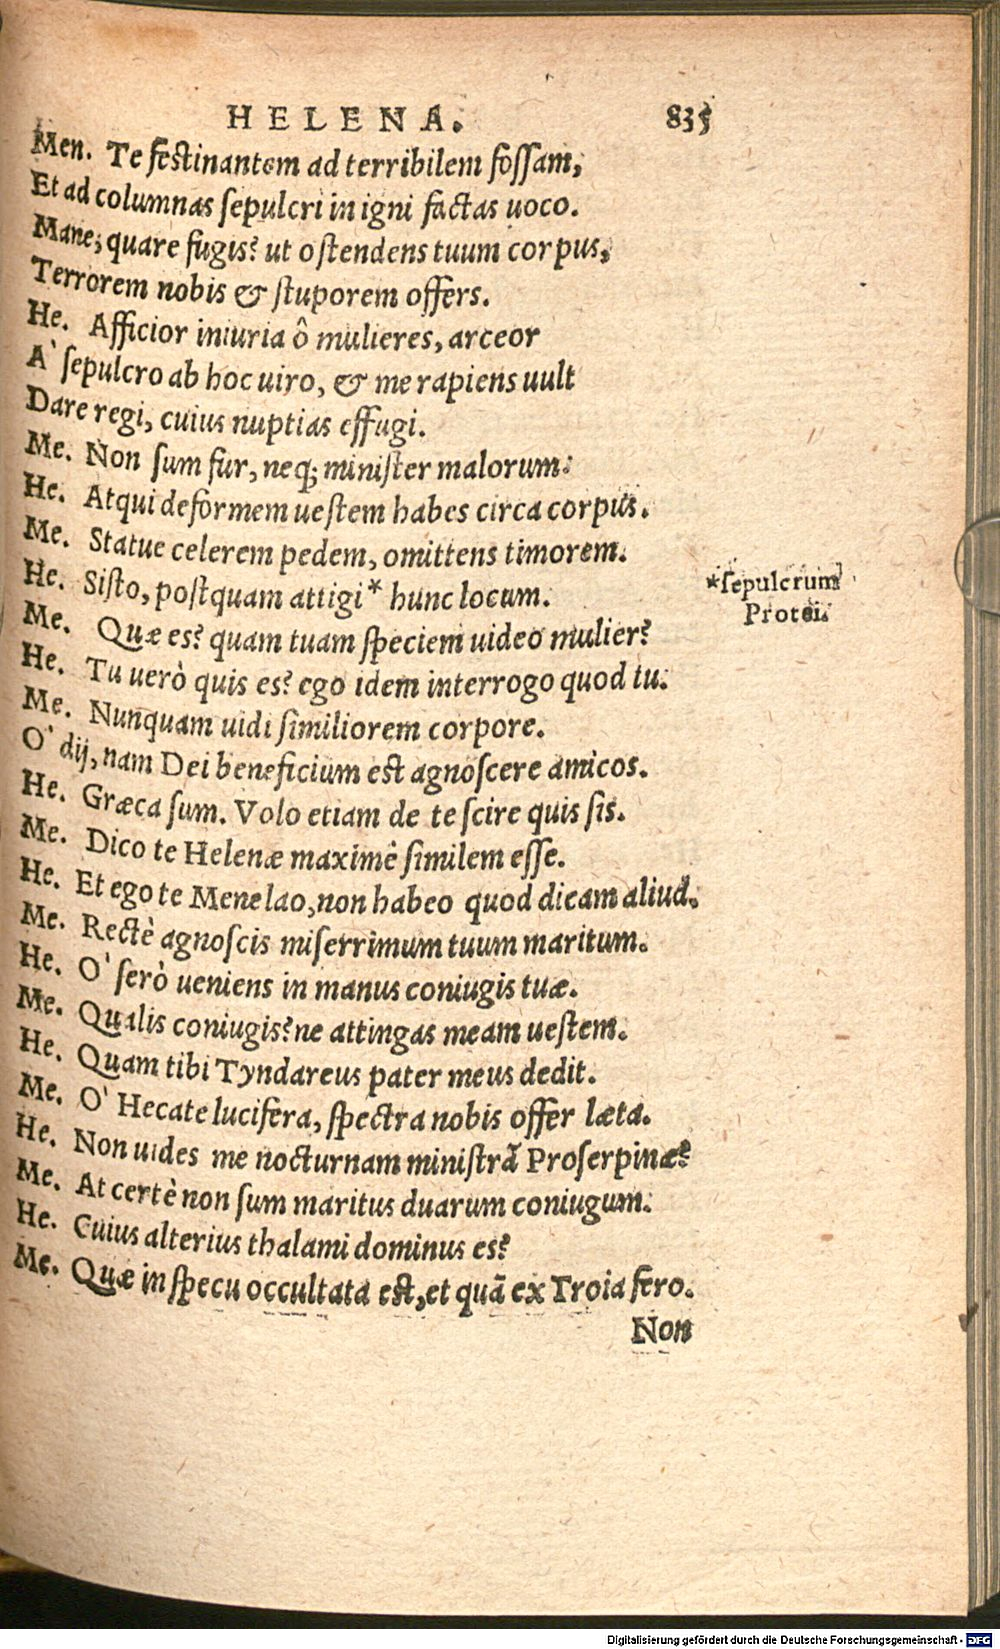 HELENA. 835
Men. Te festinantem ad terribilem fossam,
Et ad columnas sepulcri in igni factas uoco.
Mane; quare fugis? ut ostendens tuum corpus,
Terrorem nobis & stuporem offers.
He. Afficior iniuria ô mulieres, arceor
A` sepulcro ab hoc uiro, & me rapiens uult
Dare regi, cuius nuptias effugi.
Me. Non sum fur, neq; minister malorum.
He. Atqui deformem uestem habes circa corpus.
Me. Statue celerem pedem, omittens timorem.
He. Sisto, postquam attigi* hunc locum.
*sepulcrum
Protei.
Me. Quæ es? quam tuam speciem uideo mulier?
He. Tu uerò quis es? ego idem interrogo quod tu.
Me. Nunquam uidi similiorem corpore.
O` dij, nam Dei beneficium est agnoscere amicos.
He. Græca sum. Volo etiam de te scire quis sis.
Me. Dico te Helenæ maximè similem esse.
He. Et ego te Menelao, non habeo quod dicam aliud.
Me. Rectè agnoscis miserrimum tuum maritum.
He. O` serò ueniens in manus coniugis tuæ.
Me. Qualis coniugis? ne attingas meam uestem.
He. Quam tibi Tyndareus pater meus dedit.
Me. O` Hecate lucifera, spectra nobis offer læta.
He. Non uides me nocturnam ministrā Proserpinæ?
Me. At certè non sum maritus duarum coniugum.
He. Cuius alterius thalami dominus es?
Me. Quæ in specu occultata est, et quā ex Troia fero.
Non
Digitalisierung gefördert durch die Deutsche Forschungsgemeinschaft - DFG